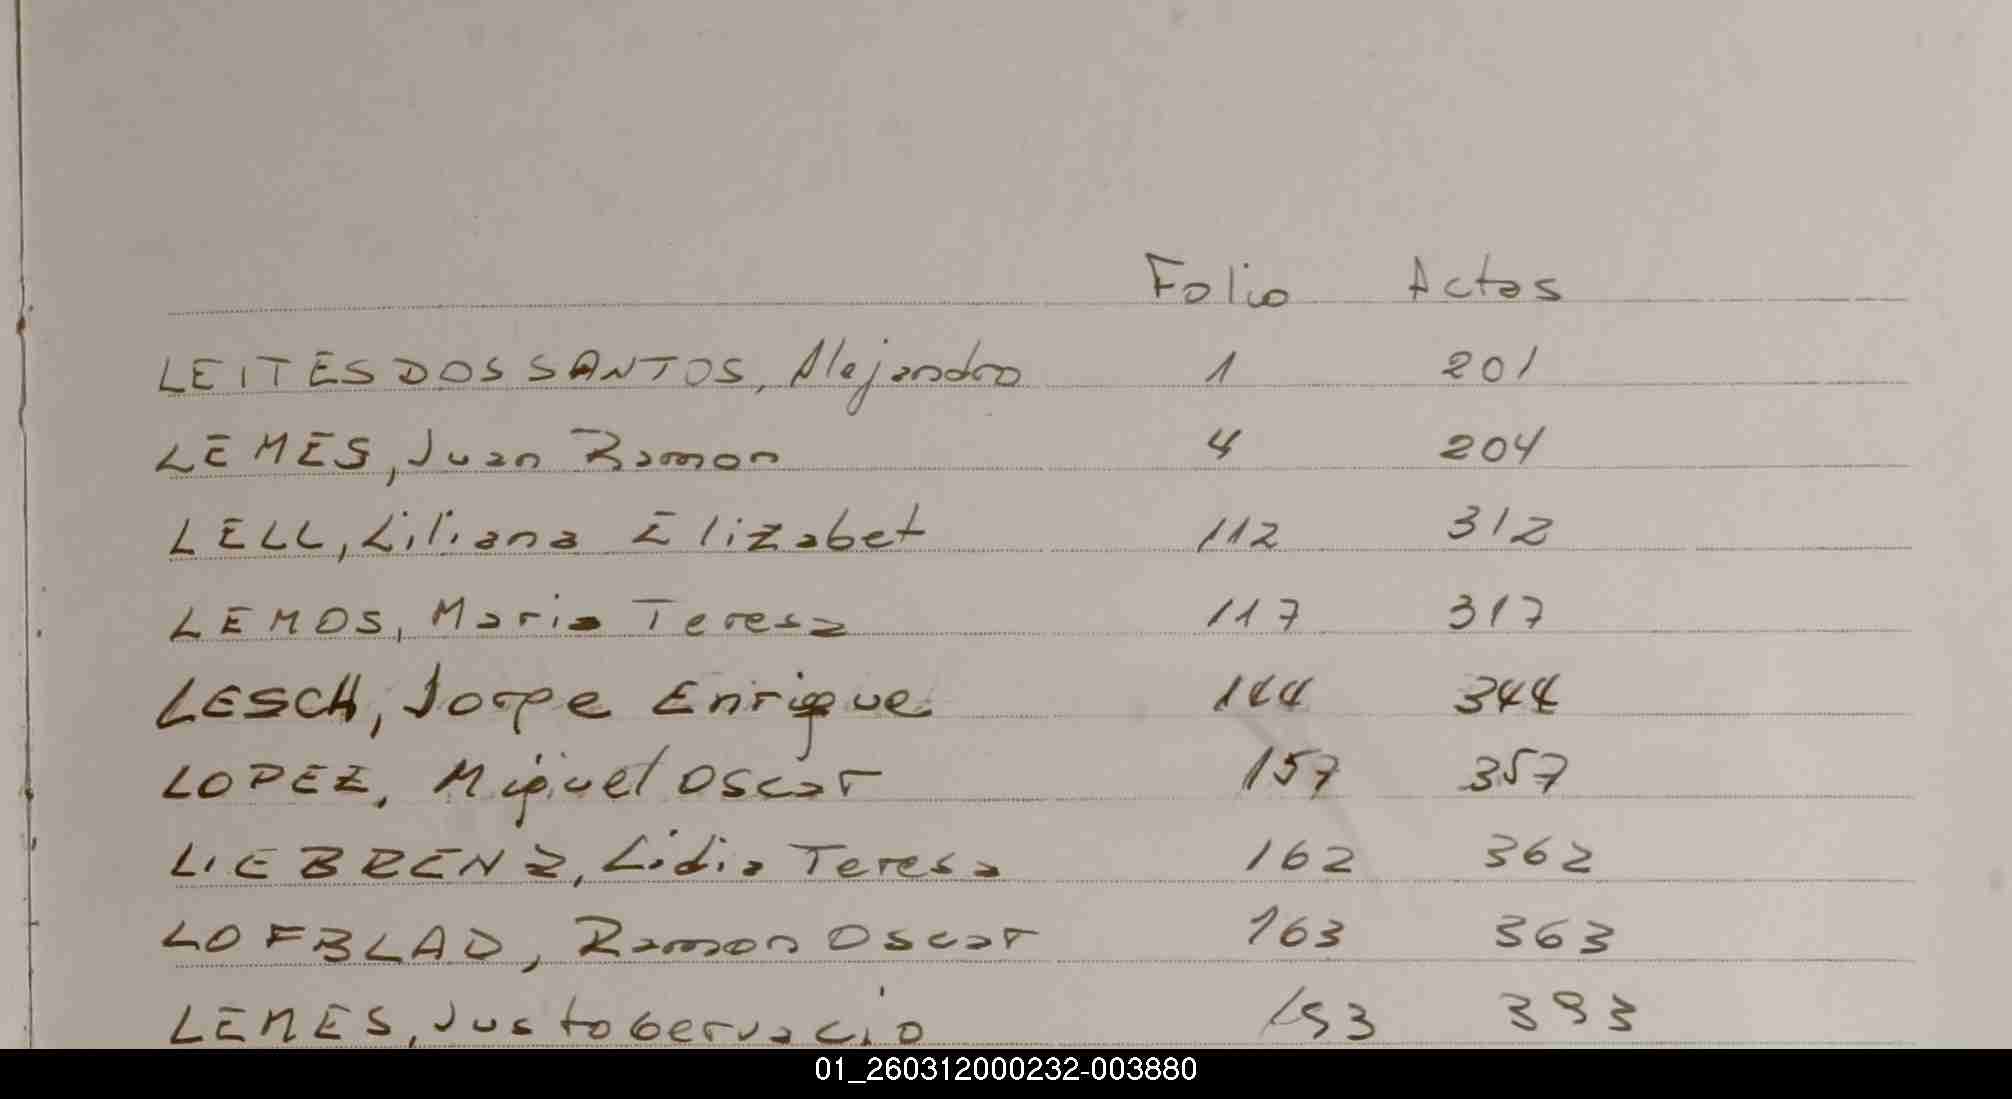 Folio Actas
LEITES DOS SANTOS, Alejandro 1 201
LEMES, Juan Ramon 4 204
LELL, Liliana Elizabet 112 312
LEMOS, Maria Teresa 117 317
LESCH, Jorge Enrique 144 344
LOPEZ, Miguel Oscar 157 357
LIEBRENZ, Lidia Teresa 162 362
LOFBLAD, Ramon Oscar 163 363
LEMES, Justo Gervacio 193 393
01_260312000232-003880